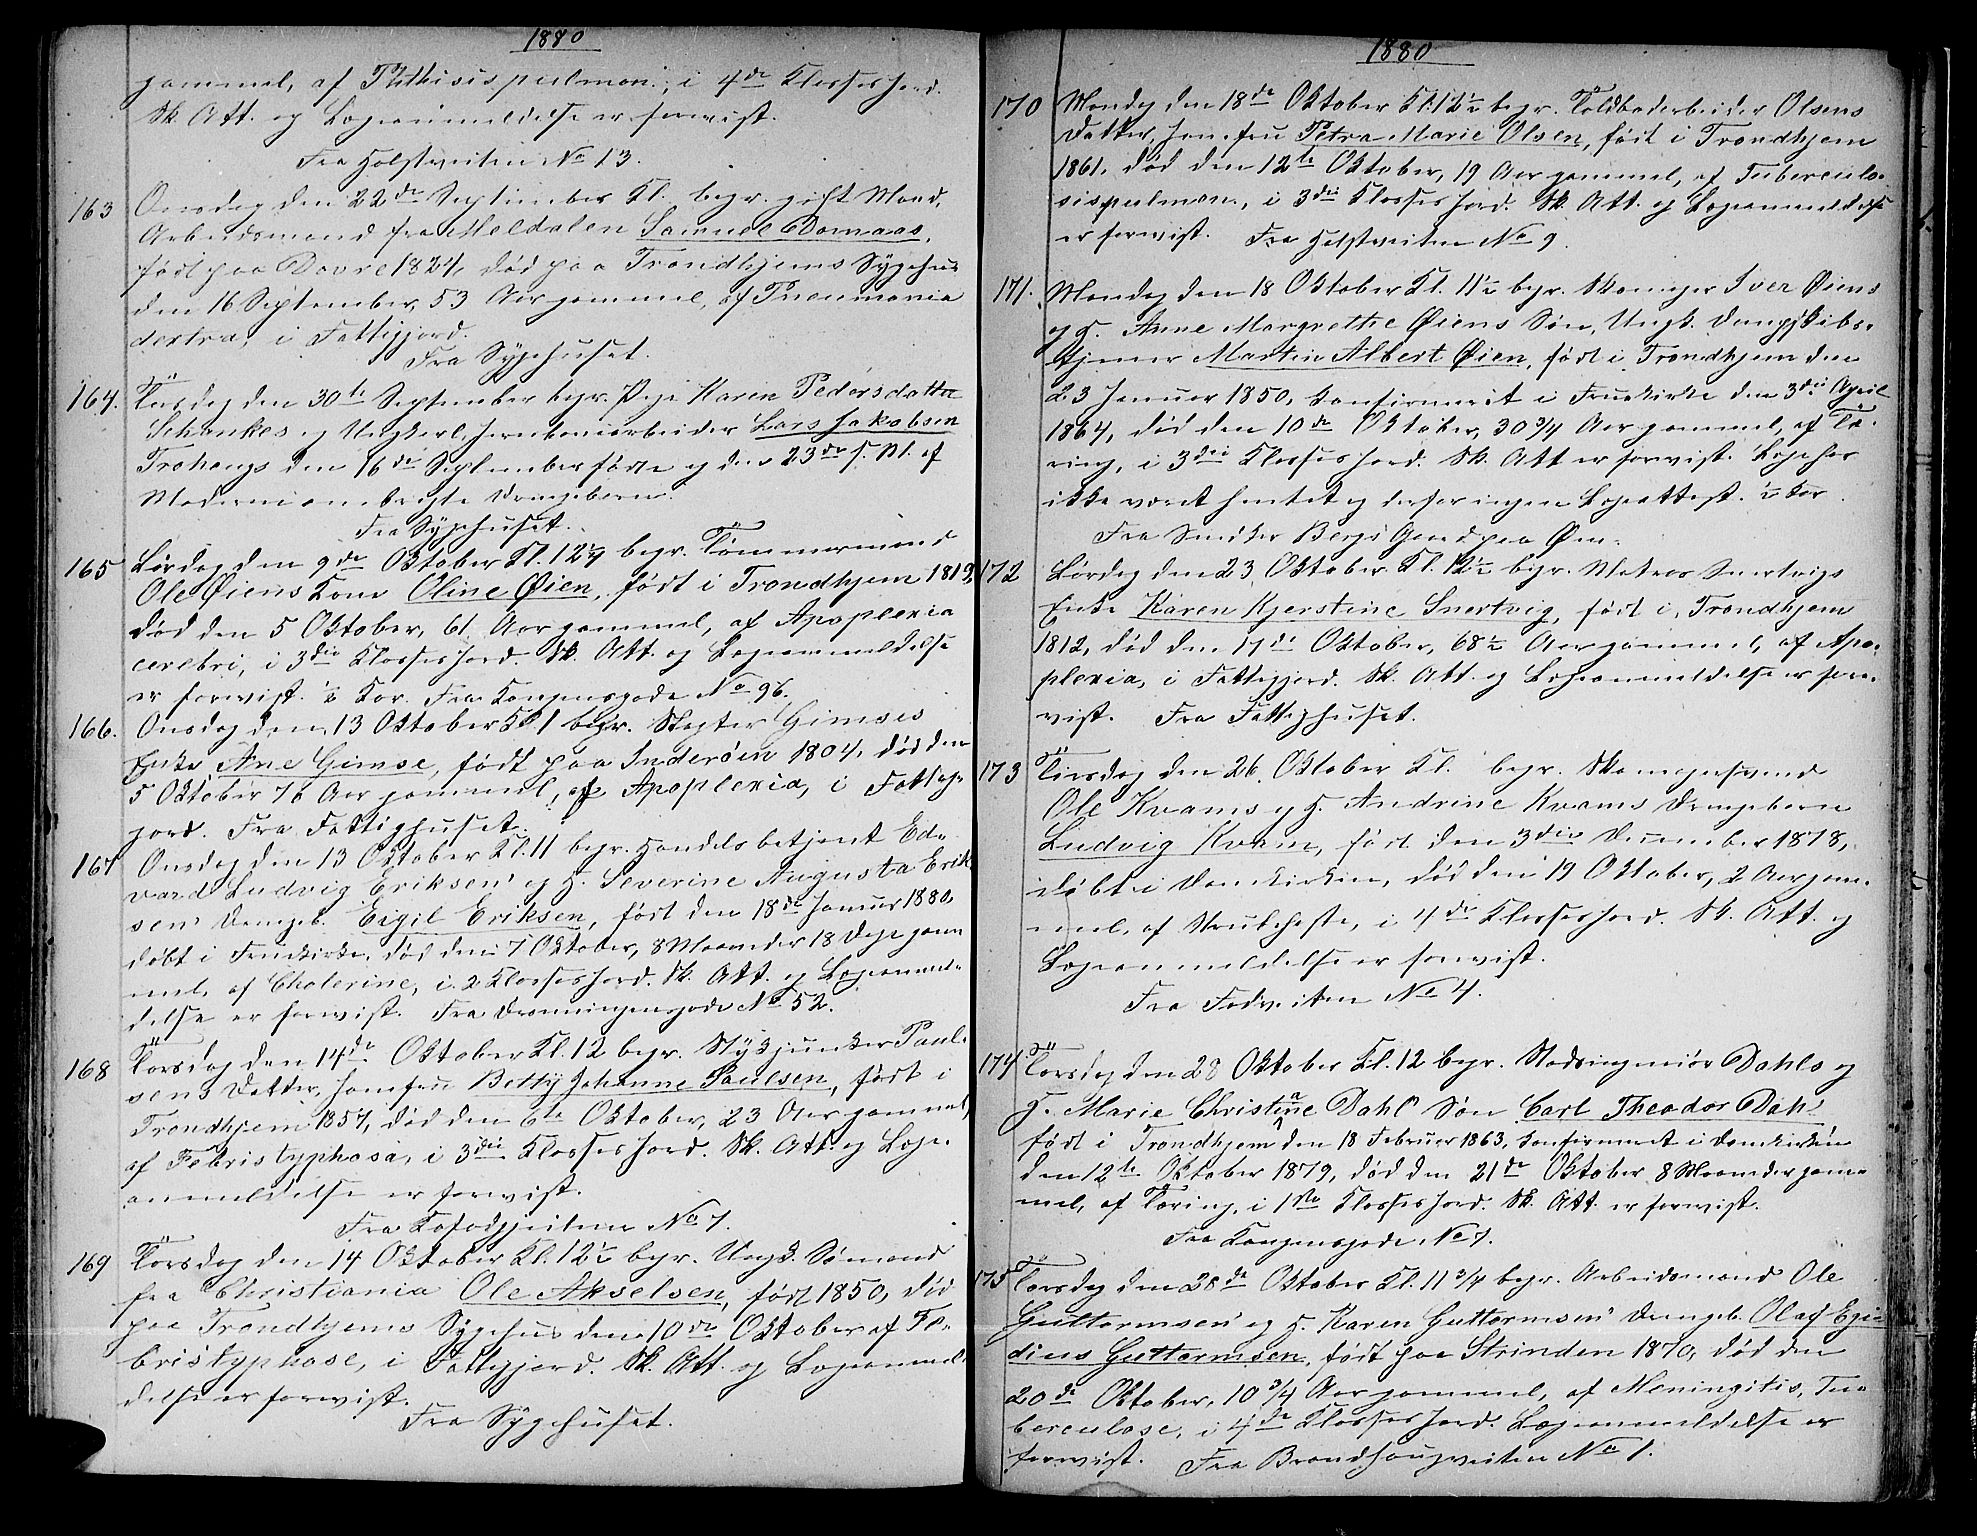 1880
gammel, af Phthisis pulmon., i 4de Klasses Jord.
Sk. Att. og Lægeanmeldelse er forevist.
Fra Holstveiten No 13.
163 Onsdag den 22de September Kl. begr. gift Mand,
Arbeidsmand fra Meldalen Samuel Domaas,
født paa Dovre 1824, død paa Trondhjems Sygehus
den 16 September, 53 Aar gammel, af Pneumonia
dextra, i Fattigjord.
Fra Sygehuset.
164. Torsdag den 30te September begr. Pige Karen Pedersdatter
Schankes og Ungkarl, Jernbanearbeider Lars Jakobsen
Trohaugs den 16de September fødte og den 23de s. M. af
Moderen ombragte Drengebarn.
Fra Sygehuset.
165 Lørdag den 9de Oktober Kl. 12 1/4 begr. Tømmermand
Ole Øiens Kone Oline Øien, født i Trondhjem 1819,
død den 5 Oktober, 61 Aar gammel, af Apoplexia
cerebri, i 3die Klasses Jord. Sk. Att. og Lægeanmeldelse
er forevist. 1/2 Kor. Fra Kongensgade No 96.
166. Onsdag den 13 Oktober Kl 1 begr. Slagter Gimses
Enke Ane Gimse, født paa Inderøen 1804, død den
5 Oktober 76 Aar gammel, af Apoplexia, i Fattig-
jord. Fra Fattighuset.
167 Onsdag den 13 Oktober Kl. 11 begr. Handelsbetjent Ed-
vard Ludvig Eriksen' og H. Severine Augusta Erik
sen' Drengeb. Eigil Eriksen, født den 18de Januar 1880,
døbt i Fruekirke, død den 7 Oktober, 8 Maaneder 18 Dage gam
mel, af Cholerine, i 2 Klasses Jord. Sk. Att. og Lægeanmel-
delse er forevist. Fra Dronningensgade No 52.
168 Torsdag den 14de Oktober Kl. 12 begr. Stykjunker Paul-
sens Datter, Jomfru Betty Johanne Paulsen, født i
Trondhjem 1857, død den 6te Oktober, 23 Aar gammel,
af Febris typhosa, i 3die Klasses Jord. Sk. Att. og Læge-
anmeldelse er forevist.
Fra No 7.
169 Torsdag den 14 Oktober Kl. 12 1/2 begr. Ungk. Sømand
fra Christiania Ole Akselsen, født 1850, død
paa Trondhjems Sygehus den 10de Oktober af Fe-
bris typhose, i Fattigjord. Sk. Att. og Lægeanmel-
delse er forevist.
Fra Sygehuset.
1880
170 Mandag den 18de Oktober Kl. 12 1/2 begr. Toldbodarbeider Olsens
Datter, Jomfru Petra Marie Olsen, født i Trondhjem
1861, død den 12te Oktober, 19 Aar gammel, af Tuberculo-
sis pulmon., i 3die Klasses Jord. Sk. Att. og Lægeanmeldelse
er forevist. Fra Holstveiten No 9.
171. Mandag den 18 Oktober Kl. 11 1/2 begr. Skomager Iver Øiens
og H. Anne Margrethe Øiens Søn, Ungk. Dampskibs-
tjener Martin Albert Øien, født i Trondhjem den
23 Januar 1850, konfirmeret i Fruekirke den 3die April
1864, død den 10de Oktober, 30 3/4 Aar gammel, af Tæ-
ring, i 3die Klasses Jord. Sk. Att er forevist. Læge har
ikke været hentet og derfor ingen Lægeattest. 1/2 Kor.
Fra Snedker Bergs Gaard paa Øen.
172 Lørdag den 23 Oktober Kl. 12 1/2 begr. Matros Snertvigs
Enke Karen Kjerstine Snertvig, født i Trondhjem
1812, død den 17de Oktober, 68 1/2 Aar gammel, af Apo-
plexia, i Fattigjord. Sk. Att. og Lægeanmeldelse er fore-
vist. Fra Fattighuset.
173 Tirsdag den 26. Oktober Kl. begr. Skomagersvend
Ole Kvams og H. Andrine Kvams Drengebarn
Ludvig Kvam, født den 3die December 1878,
døbt i Domkirken, død den 19 Oktober, 2 Aar gam-
mel, af Strubehoste, i 4de Klasses Jord. Sk. Att. og
Lægeanmeldelse er forevist.
Fra No 4.
174 Torsdag den 28 Oktober Kl. 12 begr. Stadsingeniør Dahls og
H. Marie Christina Dahl' Søn Carl Theodor Dahl
født i Trondhjem den 18 Februar 1863, konfirmeret i Domkirken
den 12te Oktober 1879, død den 21de Oktober 8 Maaneder gam-
mel, af Tæring, i 1ste Klasses Jord. Sk. Att. er forevist.
Fra Kongensgade No 7.
175 Torsdag den 28de Oktober Kl. 11 3/4 begr. Arbeidsmand Ole
Guttormsen' og H. Karen Guttormsen' Drengeb. Olaf Egi-
dius Guttormsen, født paa Strinden 1870, død den
20de Oktober, 10 3/4 Aar gammel, af Meningitis, Tu-
berculose, i 4de Klasses Jord. Lægeanmeldelse er
forevist. Fra Brandhaugveiten No 1.